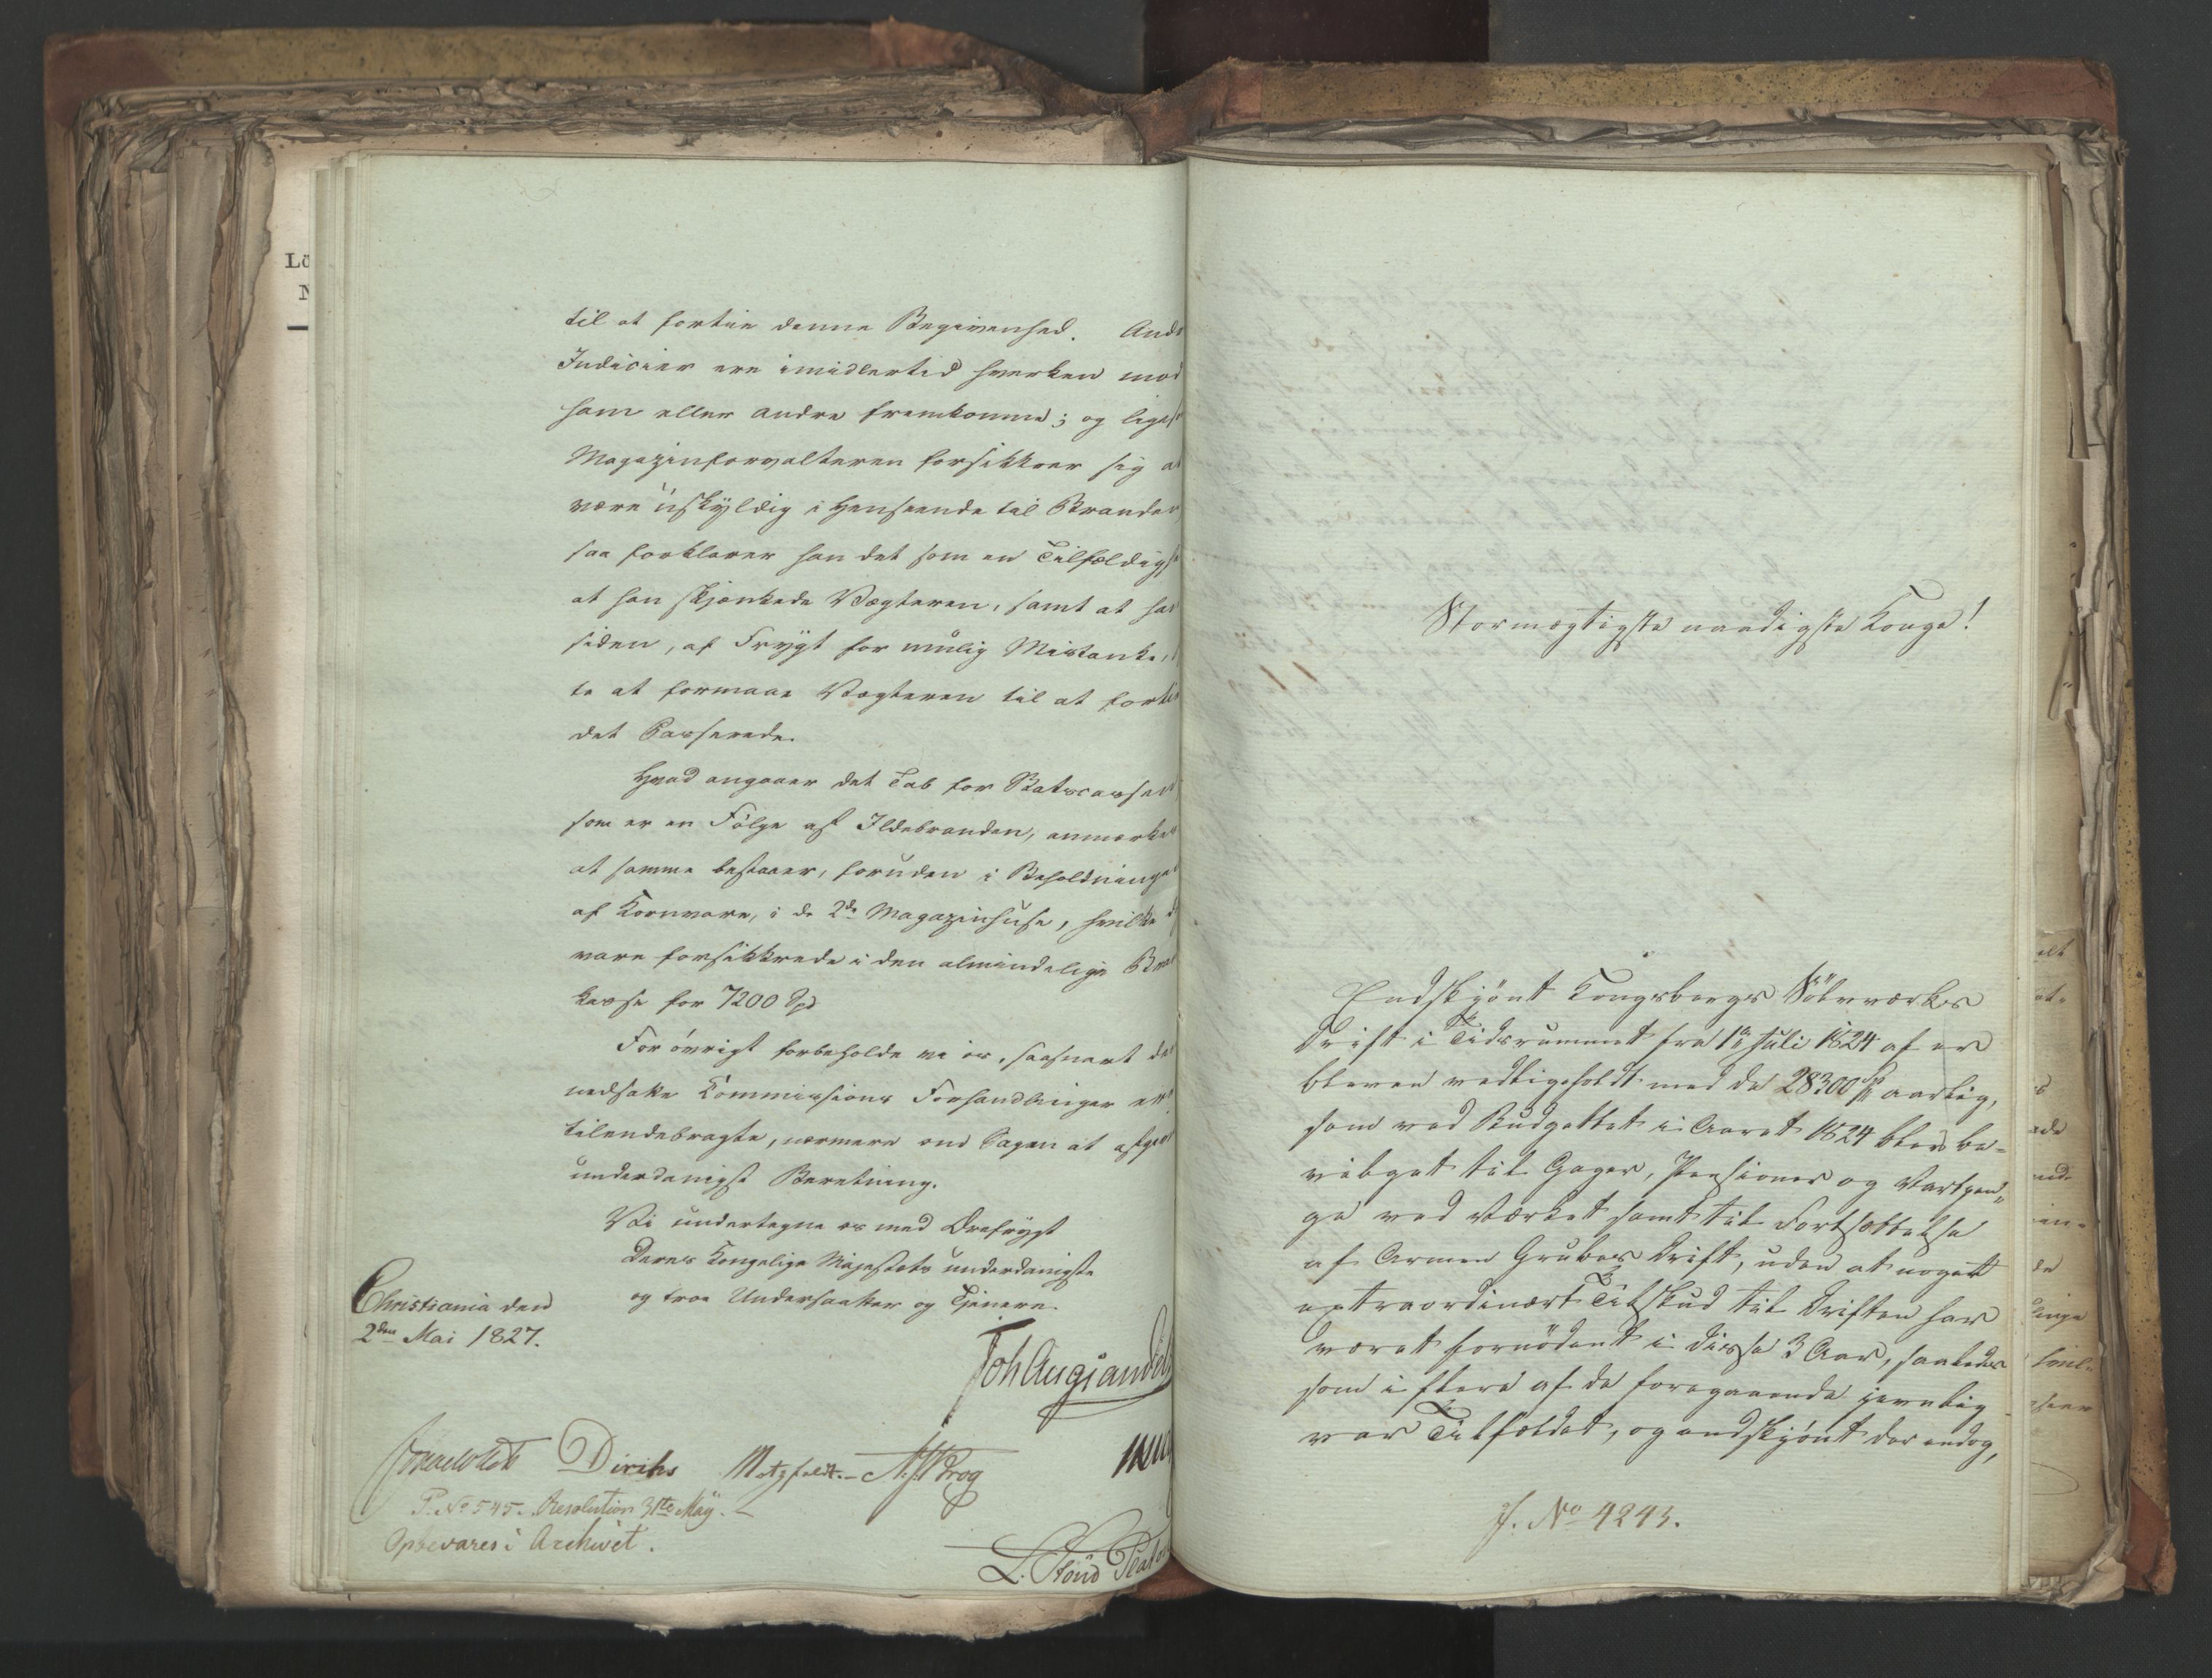 til at fortie denne Begivenhed. And
Indicier ere imidlertid hverken mod
ham eller andre fremkomne; og liges
Magazinforvalteren forsikkrer sig a
være uskyldig i Henseende til Branden
saa forklarer han det som en Tilfældigh
at han skjænkede Vægteren, samt at ha
siden, af Frygt for mulig Mistanke,
te at formaae Vægteren til at forti
det Passerede.
Hvad angaaer det Tab for Statscassen
som er en Følge af Ildebranden, anmærke
at samme bestaaer, foruden i Beholdninge
af Kornvare, i de 2de Magazinhuse, hvilke
vare forsikkrede i den almindelige Bran
kasse for 7200 Spd
For øvrigt forbeholde vi os, saasnart de
nedsatte Commissions Forhandlinger er
tilendebragte, nærmere om Sagen at afgive
underdanigst Beretning.
Vi undertegne os med Ærefrygt
Deres Kongelige Majestæts underdanigste
og troe Undersaatter og Tjenere.
Christiania den
2den Mai 1827.
Joh Aug Sandels
Diriks Motzfeldt. Krog
P. No 545. Resolution 31te Maÿ.
Opbevares i Archivet.
L. Stoud Plato
Stormægtigste naadigste Konge!
Endskjønt Kongsbergs Sølvværkes
Drift i Tidsrummet fra 1ste Juli 1824 af er
bleven vedligeholdt med de 28300 Sp aarlig,
som ved Budgettet i Aaret 1824 blev be-
vilget til Gager, Pensioner og Vartpen-
ge ved Værket samt til Fortsættelse
af Armen Grubes Drift, uden at noget
extraordinært Tilskud til Driften har
været fornødent i disse 3 Aar, saaledes
som i flere af de foregaaende jevnlig
var Tilfældet, og endskjønt der endog,
J. No 4243.